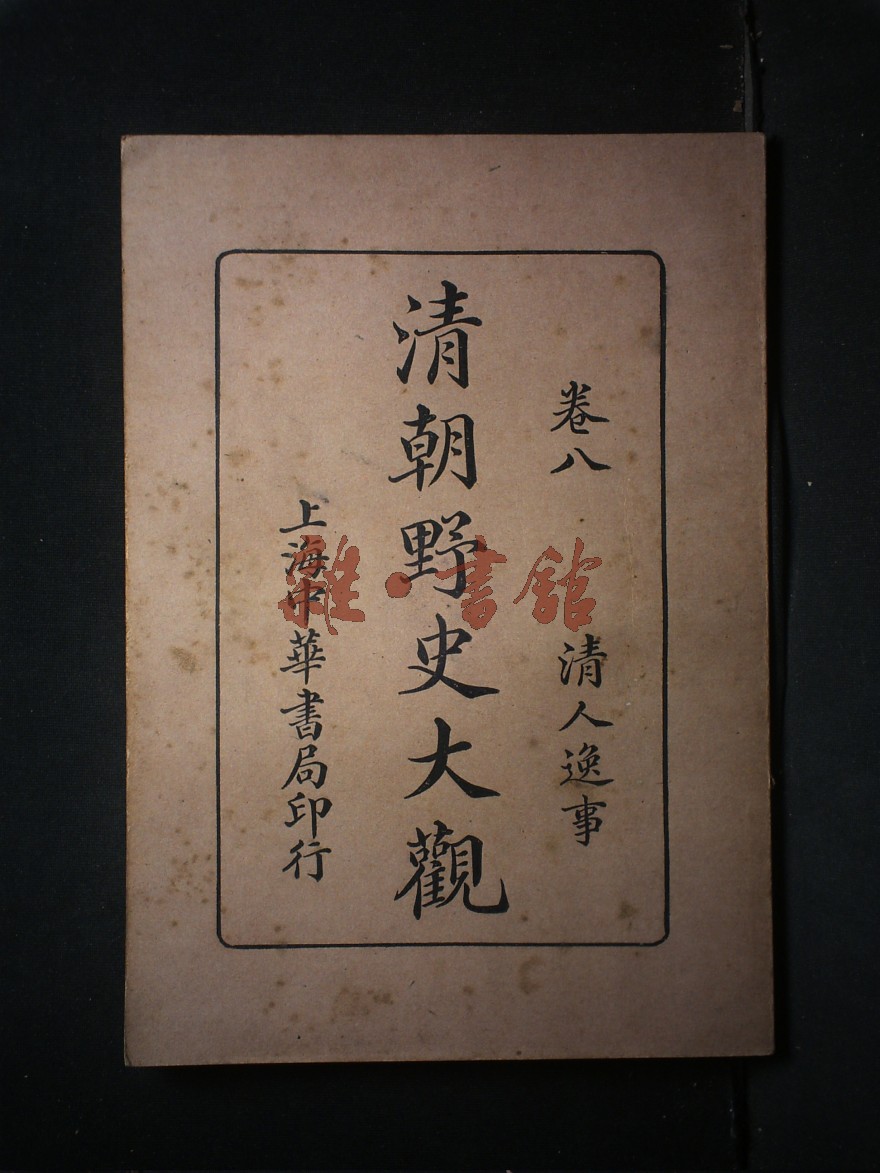 卷八 清人逸事
清朝野史大觀
上海中華書局印行
雜·書館